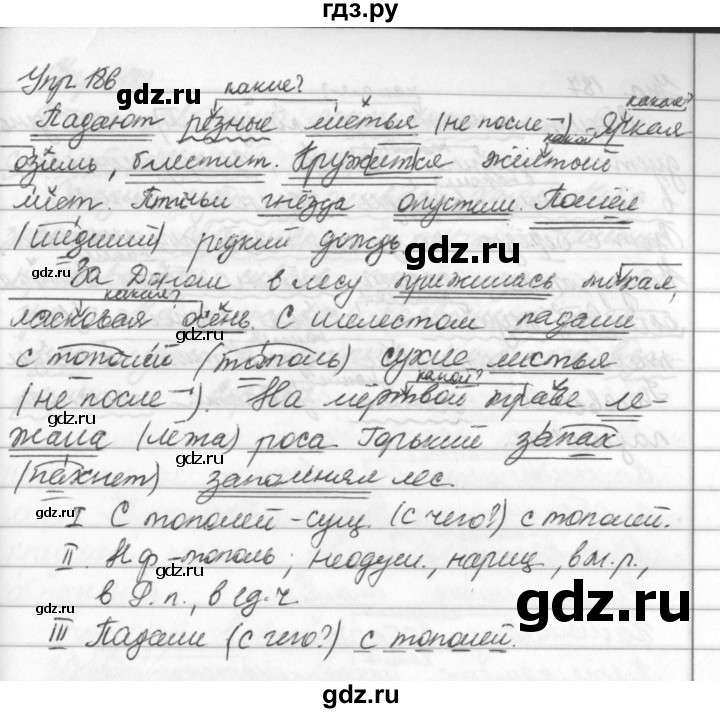 гдз.ру
Упр 186 какие? какая?
Падают резные листья (не после ¬). Яркая
какой?
озимь, блестит. Кружится жёлтый
лист. Птичьи гнёзда опустели. Пошёл
(шедший) редкий дождь.
За Доном в лесу прижилась тихая,
какая?
ласковая осень. С шелестом падали
с тополей (тополь) сухие листья
какой?
(не после ¬). На мёртвой траве ле-
жала (лёжа) роса. Горький запах
(пахнет) заполнял лес.
I С тополей - сущ. (с чего?) с тополей.
II. Н.ф. - тополь; неодуш., нариц, в м.р.,
в Р.п., в ед.ч.
III Падали (с чего?) с тополей.
gdz.ru
gdz.ru
gdz.ru
gdz.ru
gdz.ru
gdz.ru
gdz.ru
gdz.ru
gdz.ru
gdz.ru
gdz.ru
gdz.ru
gdz.ru
gdz.ru